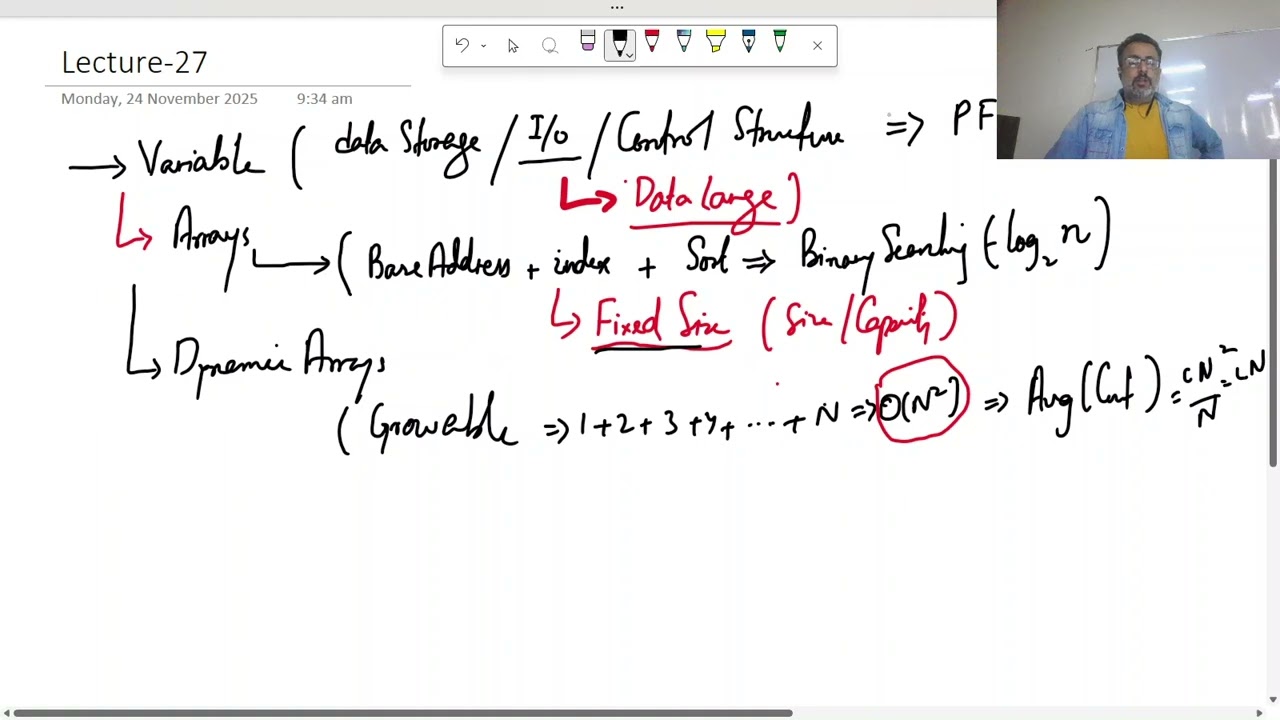 Lecture-27
Monday, 24 November 2025 9:34 am
→ Variable ( data Storage / I/O / Control Structure ⇒ PF
↳ Data large )
↳ Arrays
→ ( Base Address + index + Sort ⇒ Binary Searching ( log₂ n )
↳ Fixed Size ( Size / Capacity )
↳ Dynamic Arrays
( Growable ⇒ 1+2+3+4+...+N ⇒ O(N²) ⇒ Avg(Cost) = cN²/N = cN